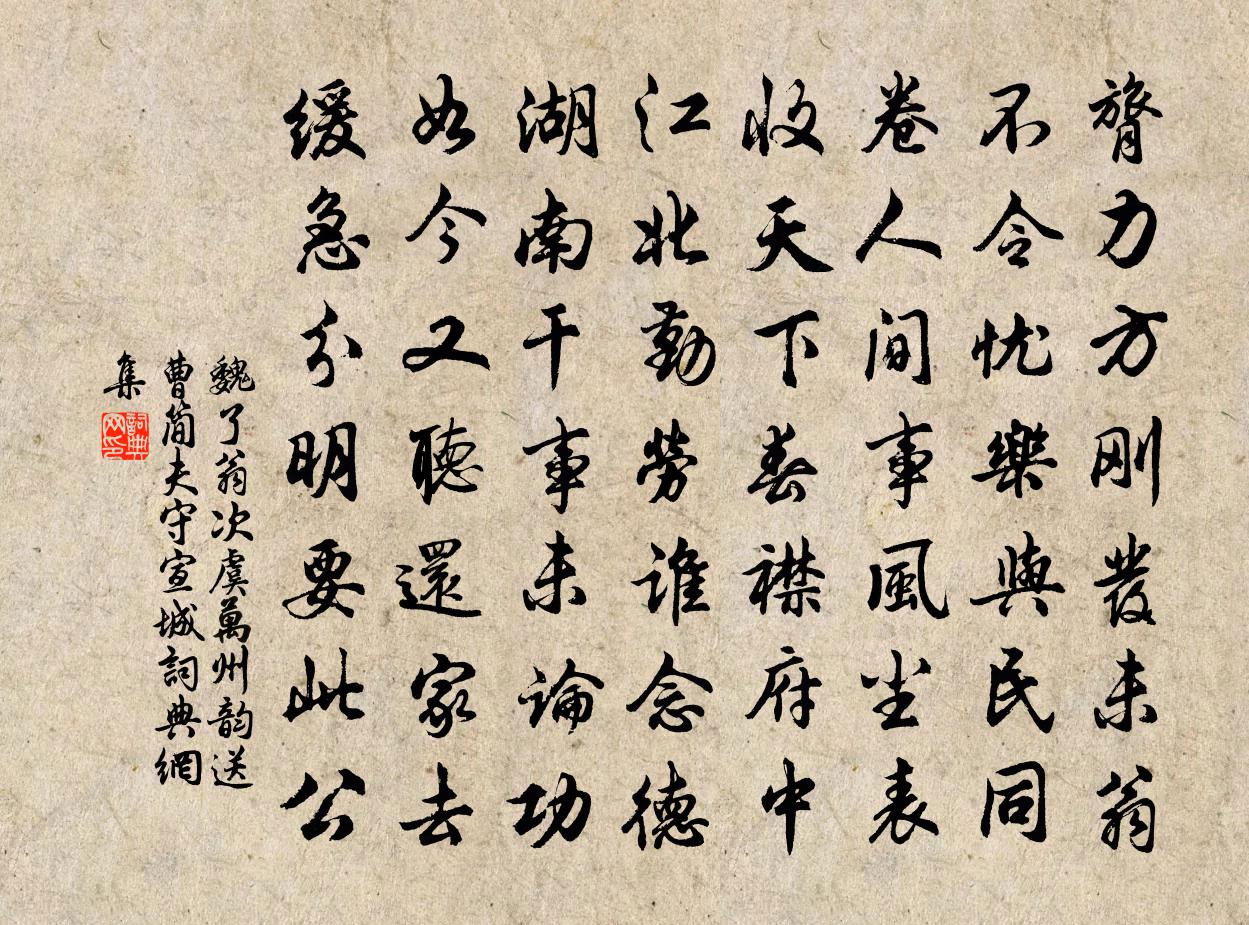 膂力方刚發未翁
不令忧樂與民同
卷人间事風尘表
收天下春襟府中
江北勤勞谁念德
湖南干事未論功
如今又聽還家去
缓急分明要此公
魏了翁次虞萬州韵送
曹简夫守宣城詞典網
集
詞典网印